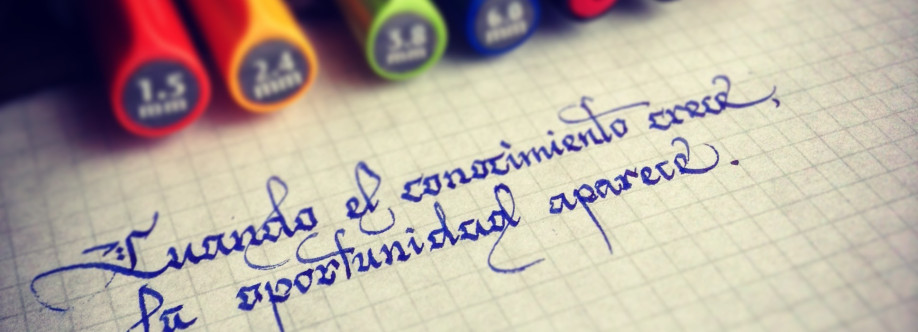 1.5 mm
2.4 mm
3.8 mm
6.0 mm
Cuando el conocimiento crece,
la oportunidad aparece.